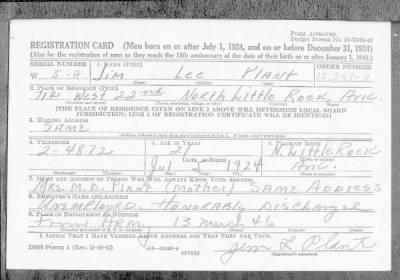 FORM APPROVED
REGISTRATION CARD (Men born on or after July 1, 1924, and on or before December 31, 1924)
(Also for the registration of men as they reach the 18th anniversary of the date of their birth on or after January 1, 1943.)
SERIAL NUMBER 1. NAME (Print) ORDER NUMBER
W 5-A Jim Lee Plant
(First) (Middle) (Last)
2. PLACE OF RESIDENCE (Print)
712 West 22nd North Little Rock, Ark.
(Number and street) (Town, township, village, or city) (County) (State)
[THE PLACE OF RESIDENCE GIVEN ON LINE 2 ABOVE WILL DETERMINE LOCAL BOARD
JURISDICTION; LINE 2 OF REGISTRATION CERTIFICATE WILL BE IDENTICAL]
3. MAILING ADDRESS
SAME
4. TELEPHONE 5. AGE IN YEARS 6. PLACE OF BIRTH
2-4872 21 N. Little Rock
DATE OF BIRTH
Jul 2 1924 Ark.
7. NAME AND ADDRESS OF PERSON WHO WILL ALWAYS KNOW YOUR ADDRESS
Mrs. M. A. Plant (mother) SAME Address
8. EMPLOYER'S NAME AND ADDRESS
Unemployed. Honorably Discharged
9. PLACE OF EMPLOYMENT OR BUSINESS
From Army 13 March 46
I AFFIRM THAT I HAVE VERIFIED ABOVE ANSWERS AND THAT THEY ARE TRUE.
DSS Form 1 (Rev. 11-16-42) (OVER) Jim L Plant